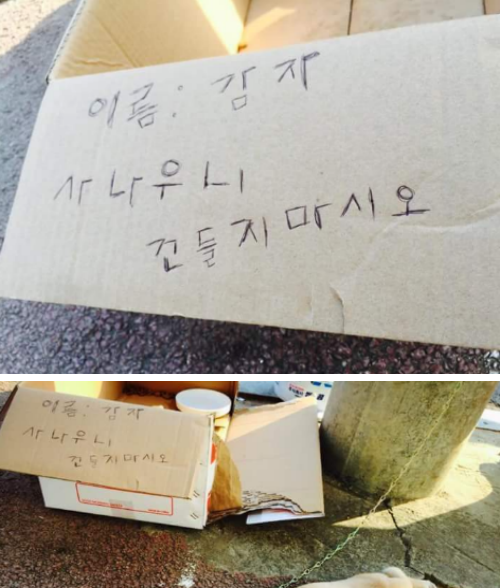 이름: 감자
사나우니
건들지마시오
이름: 감자
사나우니
건들지마시오